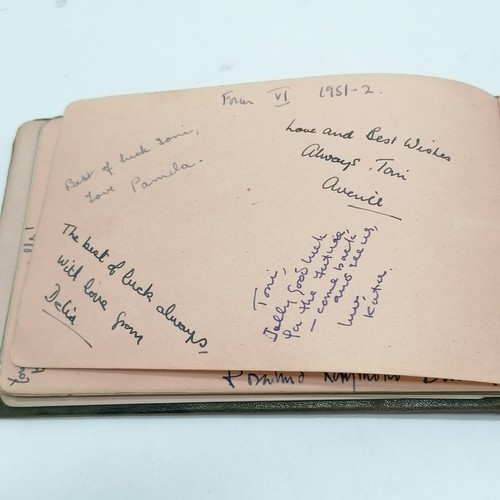 Form VI 1951-2.
Best of luck Toni,
Love Pamela.
Love and Best Wishes
Always, Toni
Averill
The best of luck always,
with love from
Delia
Toni,
Jolly Good luck
for the future,
— come back
and see us,
luv.
Katia.